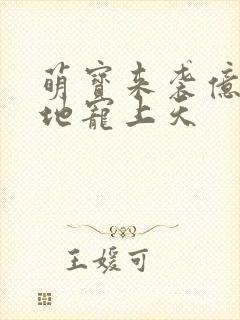 萌宝来袭億
地寵上天
王媛可